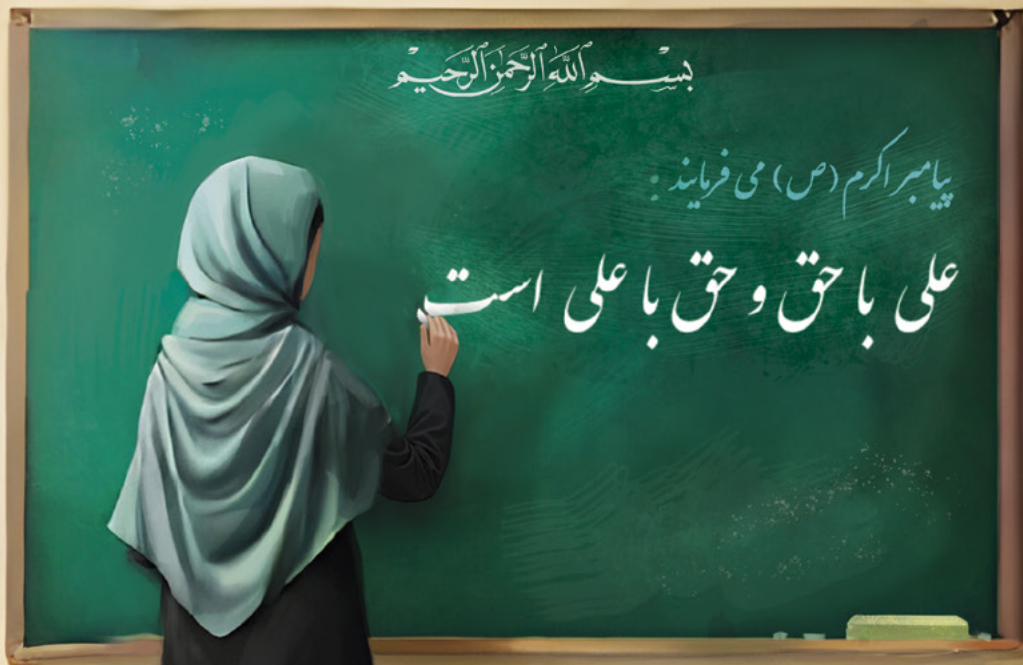 بسم الله الرحمن الرحیم
پیامبر اکرم (ص) می فرمایند :
علی با حق و حق با علی است